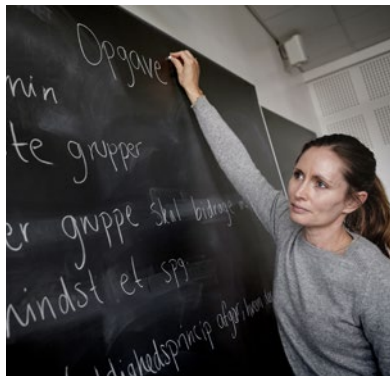 Opgave
min
te grupper
er gruppe skal bidrage
mindst et spg
dighedsprincip afgør, hvem